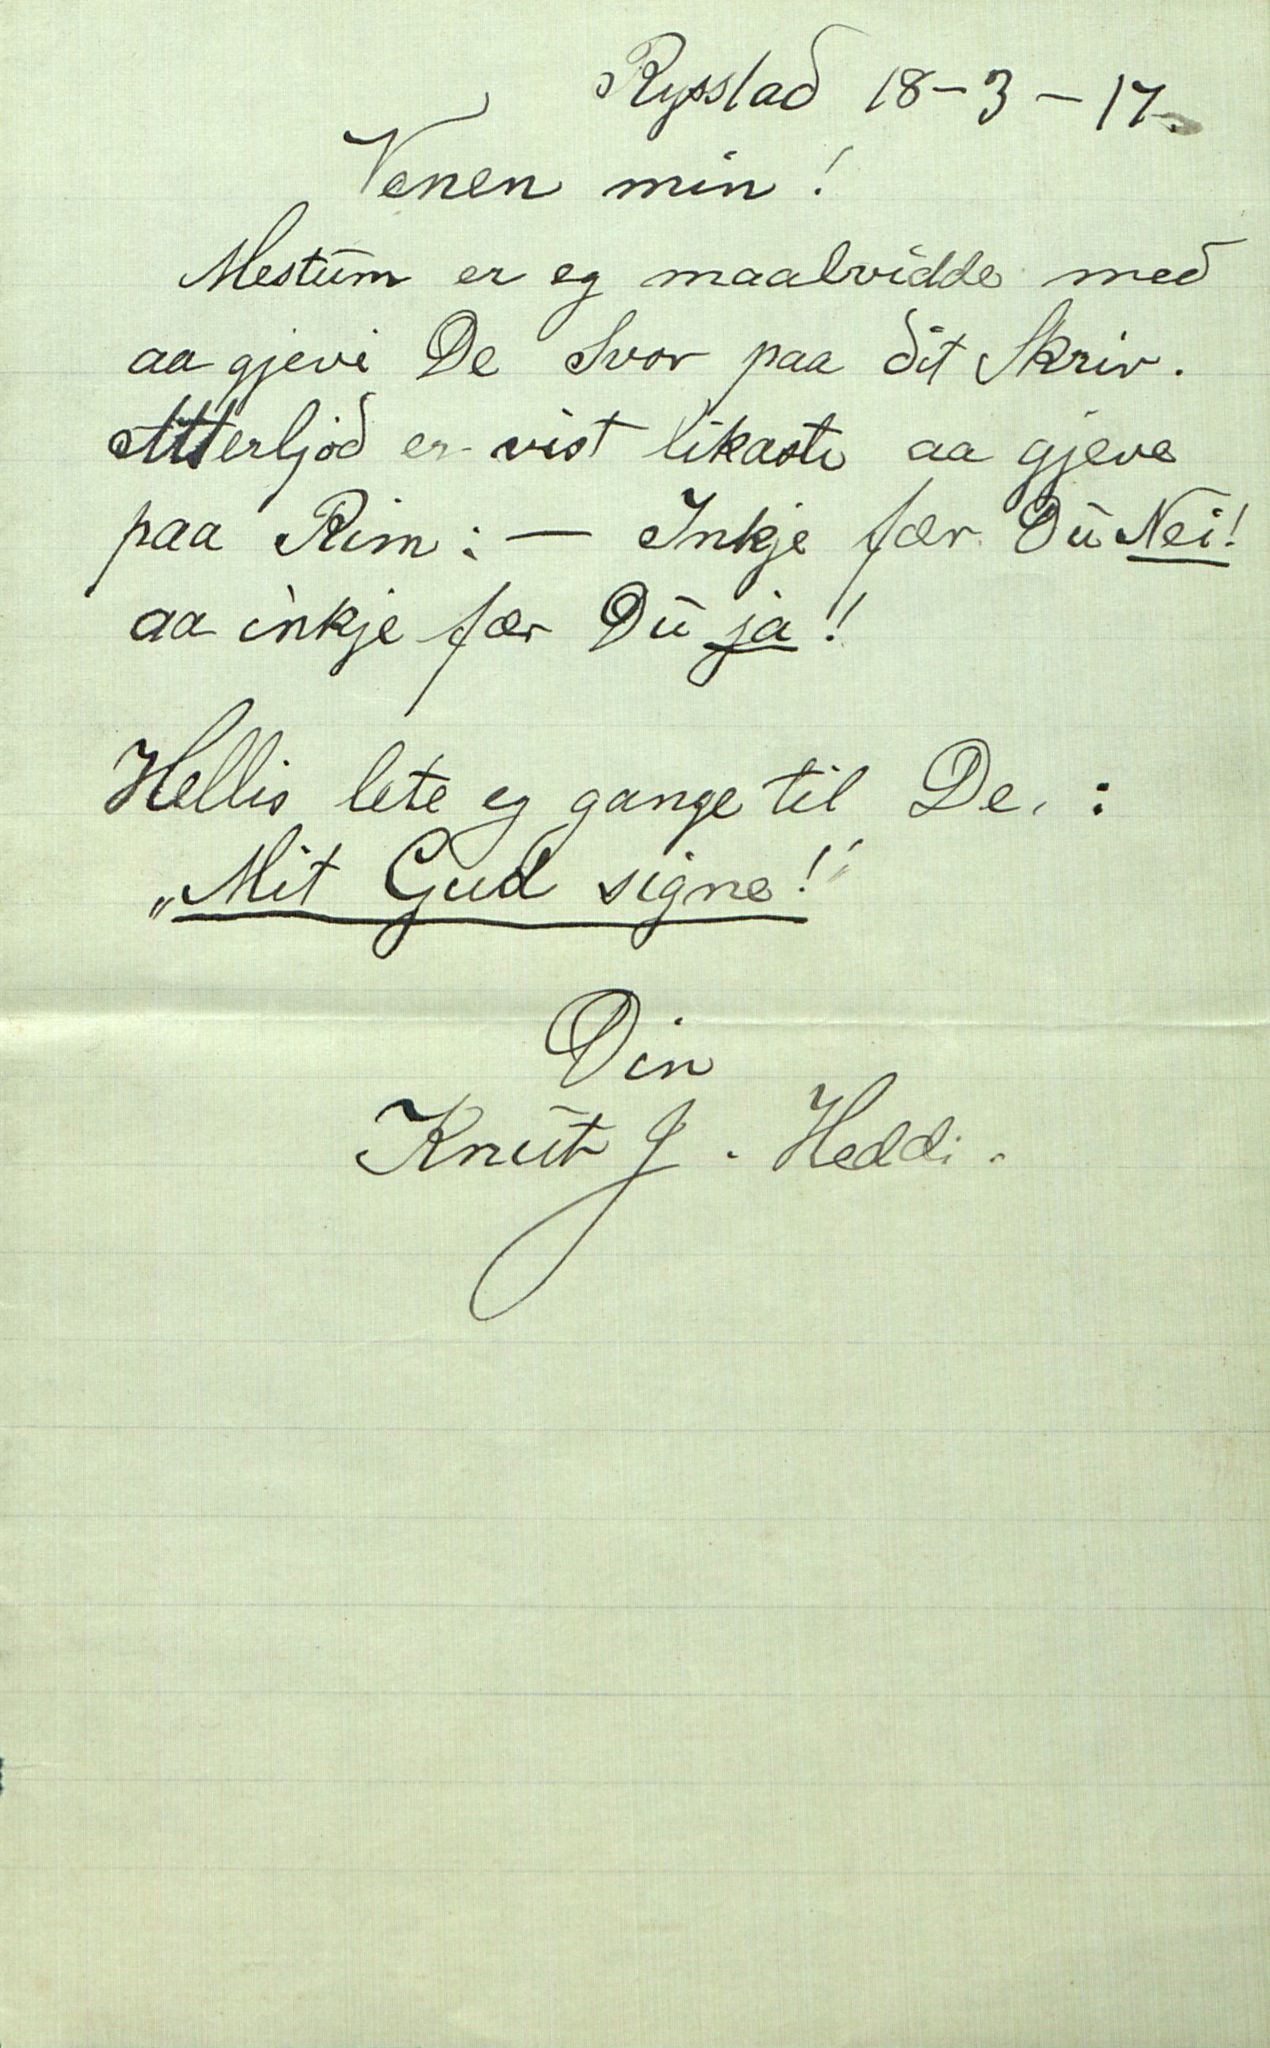 Rysstad 18-3-17.
Venen min!
Mestum er eg maalvidde med
aa gjeve De Svor paa dit Skriv.
Atterljod er vist likaste aa gjeve
paa Rim: — Inkje fær Du Nei!
aa inkje fær Du ja!
Hellis lete eg gange til De. :
„Mit Gud signe!"
Din
Knut J. Heddi.